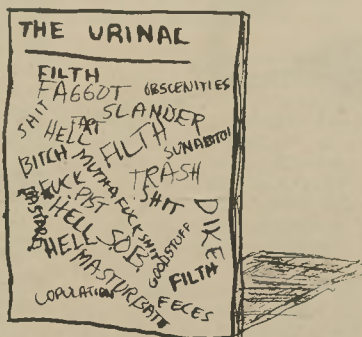 THE URINAL
FILTH
FAGGOT
OBSCENITIES
SHIT
TART
SLANDER
HELL
FILTH
SUNABITCH
BITCH
MUTHAFUCK
TRASH
FUCK
PIST
SHIT
SHIT
BASTARD
HELL
SOB
GOODSTUFF
DIKE
HELL
MASTURBATE
FILTH
COPULATION
FECES